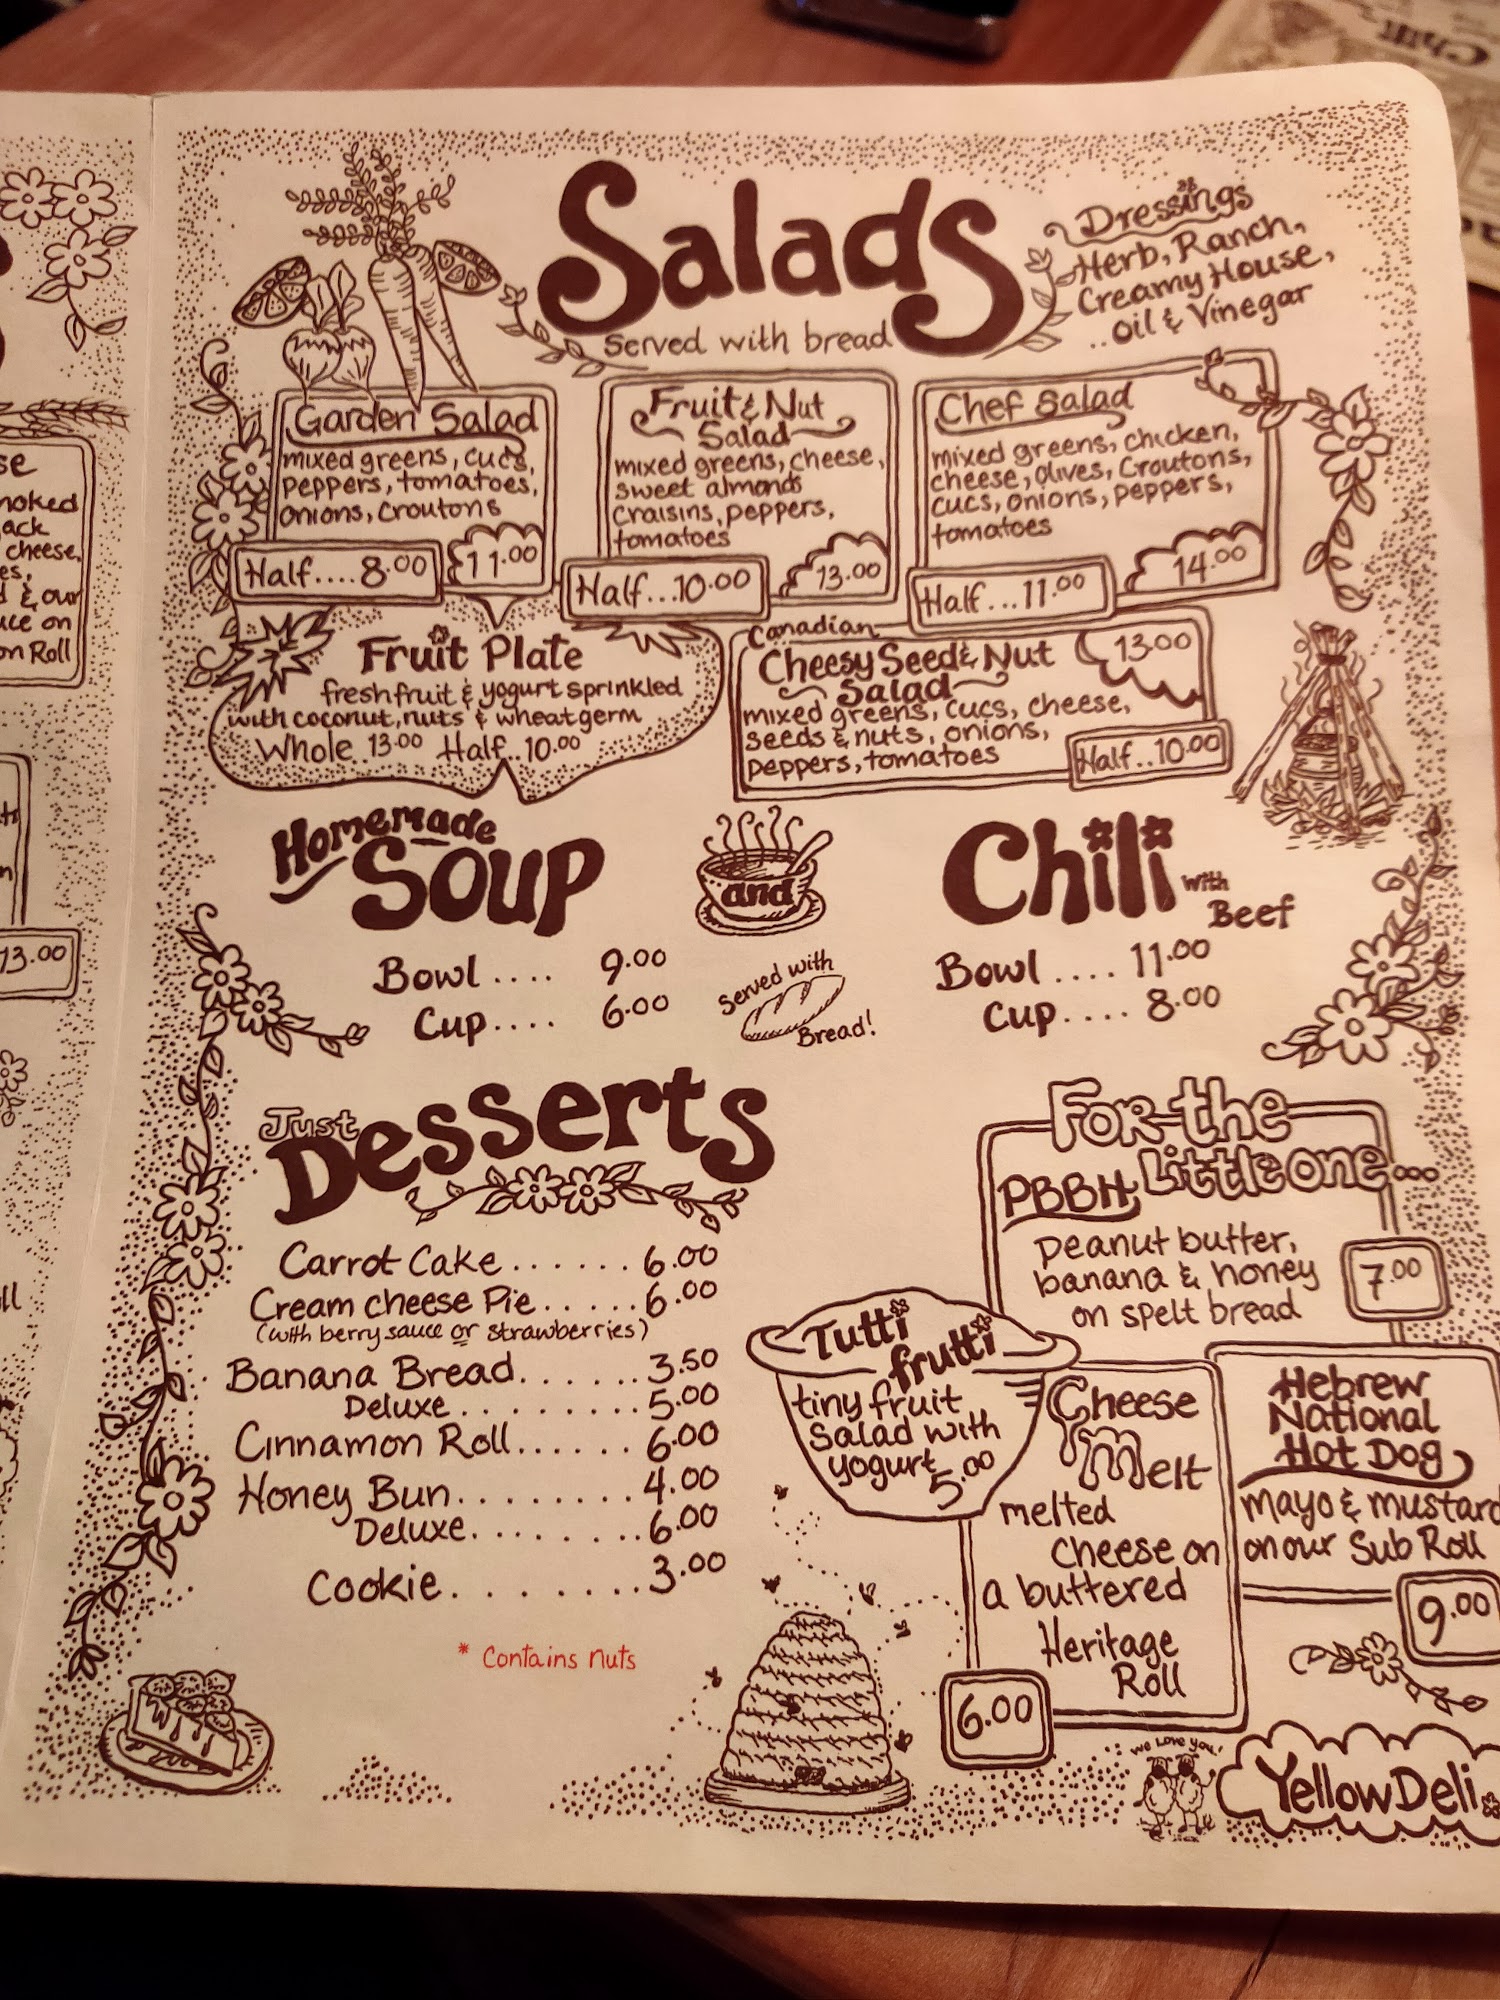 Salads
Served with bread
Dressings
Herb, Ranch,
Creamy House,
..oil & Vinegar
Garden Salad
mixed greens, cucs,
peppers, tomatoes,
onions, croutons
Half....8.00
11.00
Fruit & Nut
Salad
mixed greens, cheese,
sweet almonds
craisins, peppers,
tomatoes
Half...10.00
13.00
Chef Salad
mixed greens, chicken,
cheese, olives, croutons,
cucs, onions, peppers,
tomatoes
Half...11.00
14.00
Fruit Plate
fresh fruit & yogurt sprinkled
with coconut, nuts & wheatgerm
Whole 13.00 Half..10.00
Canadian
Cheesy Seed & Nut
Salad
13.00
mixed greens, cucs, cheese,
seeds & nuts, onions,
peppers, tomatoes
Half..10.00
Homemade
Soup
and
Chili
with
Beef
Bowl.... 9.00
Cup.... 6.00
Served with
Bread!
Bowl.... 11.00
Cup.... 8.00
Just
Desserts
Carrot Cake......6.00
Cream cheese Pie.....6.00
(with berry sauce or strawberries)
Banana Bread.......3.50
Deluxe.........5.00
Cinnamon Roll......6.00
Honey Bun........4.00
Deluxe........6.00
Cookie........3.00
* Contains nuts
For the
Little one...
PBBH
peanut butter,
banana & honey
on spelt bread
7.00
Tutti
frutti
tiny fruit
Salad with
yogurt
5.00
Cheese
Melt
melted
cheese on
a buttered
Heritage
Roll
6.00
Hebrew
National
Hot Dog
mayo & mustard
on our Sub Roll
9.00
We Love you!
Yellow Deli
se
moked
ack
cheese,
es,
& our
uce on
on Roll
13.00
Chili